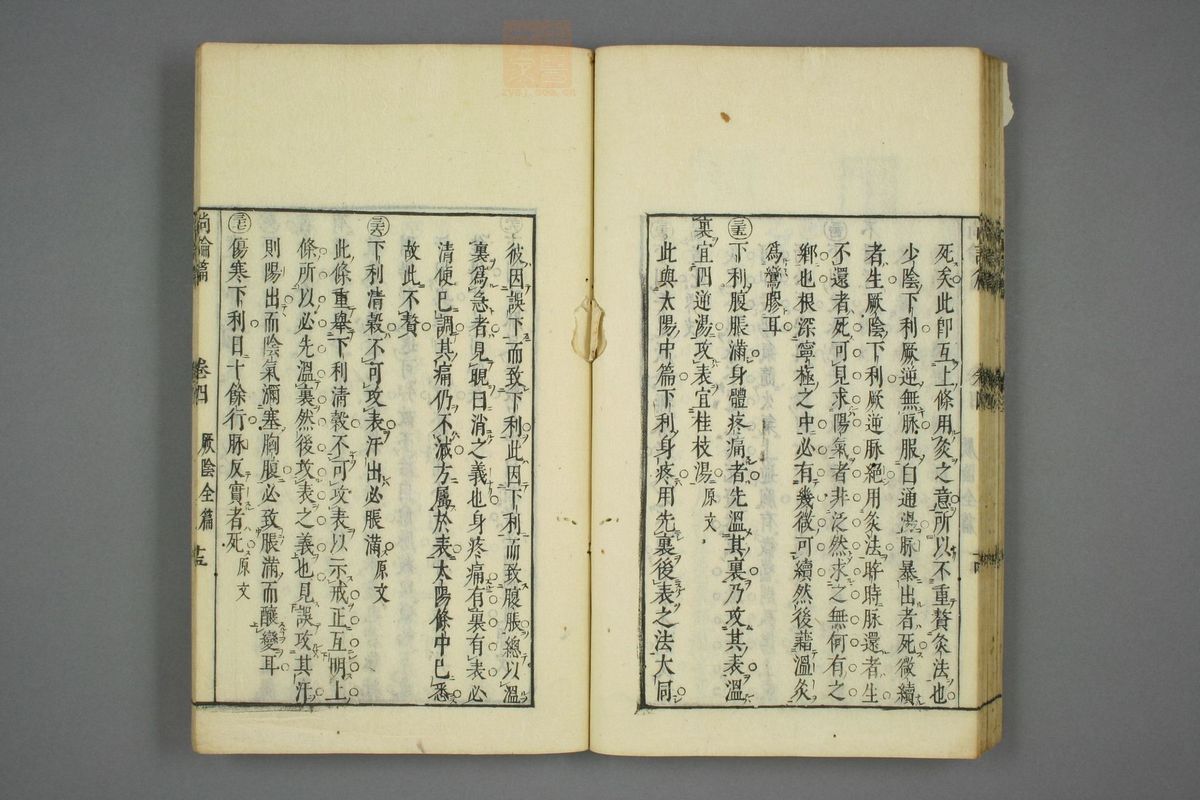 死矣此卽互上條用灸之意所以不重贅灸法也
少陰下利厥逆無脉服白通湯脉暴出者死微續
者生厥陰下利厥逆脉絕用灸法晬時脉還者生
不還者死可見求陽氣者非泛然求之無何有之
鄕也根深寧極之中必有幾微可續然後藉溫灸
爲鸞膠耳
三五 下利腹脹滿身體疼痛者先溫其裏乃攻其表溫
裏宜四逆湯攻表宜桂枝湯原文
此與太陽中篇下利身疼用先裏後表之法大同
彼因誤下而致下利此因下利而致腹脹總以溫
裏爲急者見睍曰消之義也身疼痛有裏有表必
清便已調其痛仍不減方屬於表太陽條中已悉
故此不贅
三六 下利清穀不可攻表汗出必脹滿原文
此條重舉下利清穀不可攻表以示戒正互明上
條所以必先溫裏然後攻表之義也見誤攻其汗
則陽出而陰氣瀰塞胸腹必致脹滿而釀變耳
三七 傷寒下利日十餘行脉反實者死原文
尚論篇 卷四 厥陰全篇 十五